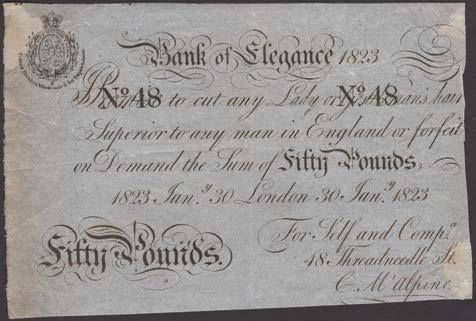 Bank of Elegance 1823
No. 48 to cut any Lady or Gentleman's hair No. 48
Superior to any man in England or forfeit
on Demand the Sum of Fifty Pounds,
1823 Jan.y 30 London 30 Jan.y 1823
For Self and Comp.y
Fifty Pounds.
48 Threadneedle St.
C. McAlpine